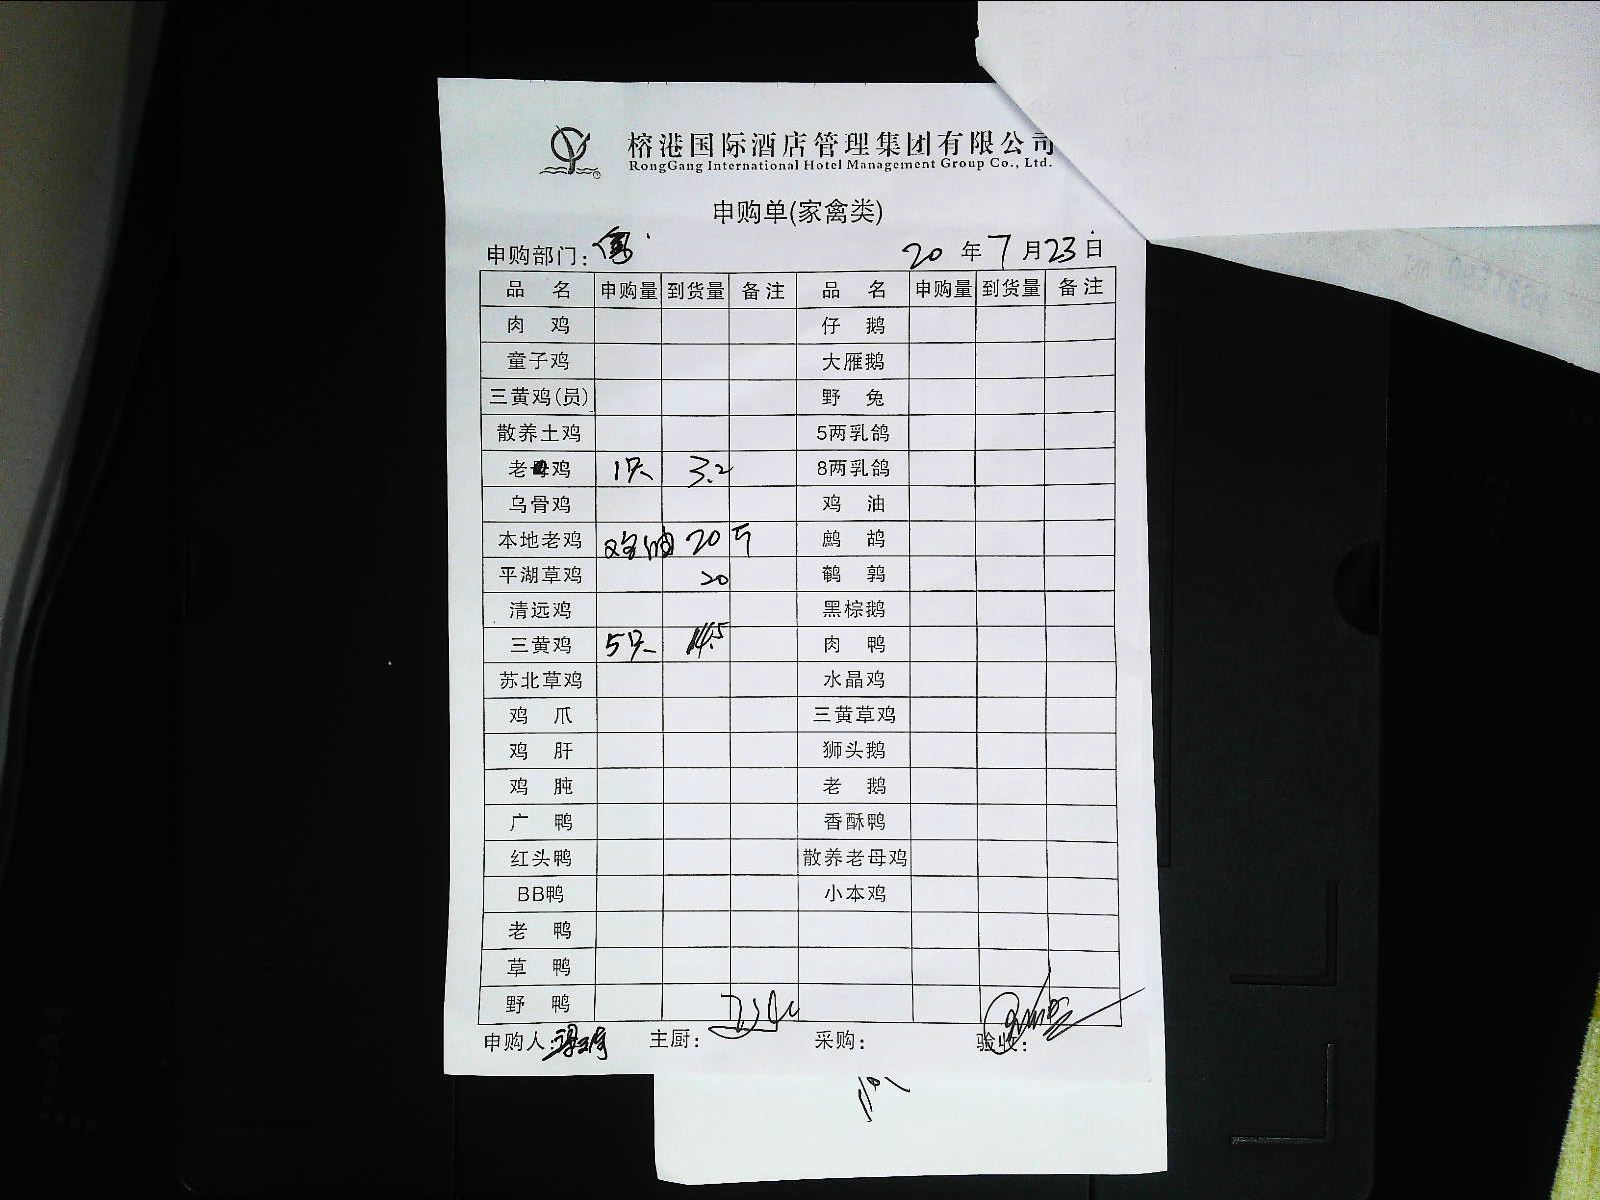 榕港国际酒店管理集团有限公司
RongGang International Hotel Management Group Co., Ltd.
申购单(家禽类)
申购部门: 20 年 7 月 23 日
品 名 申购量 到货量 备注 品 名 申购量 到货量 备注
肉 鸡 仔 鹅
童子鸡 大雁鹅
三黄鸡(员) 野 兔
散养土鸡 5两乳鸽
老母鸡 1只 3.2 8两乳鸽
乌骨鸡 鸡 油
本地老鸡 鸡油 20斤 鹧 鸪
平湖草鸡 20 鹌 鹑
清远鸡 黑棕鹅
三黄鸡 5只 14.5 肉 鸭
苏北草鸡 水晶鸡
鸡 爪 三黄草鸡
鸡 肝 狮头鹅
鸡 肫 老 鹅
广 鸭 香酥鸭
红头鸭 散养老母鸡
BB鸭 小本鸡
老 鸭
草 鸭
野 鸭
申购人: 主厨: 采购: 验收: